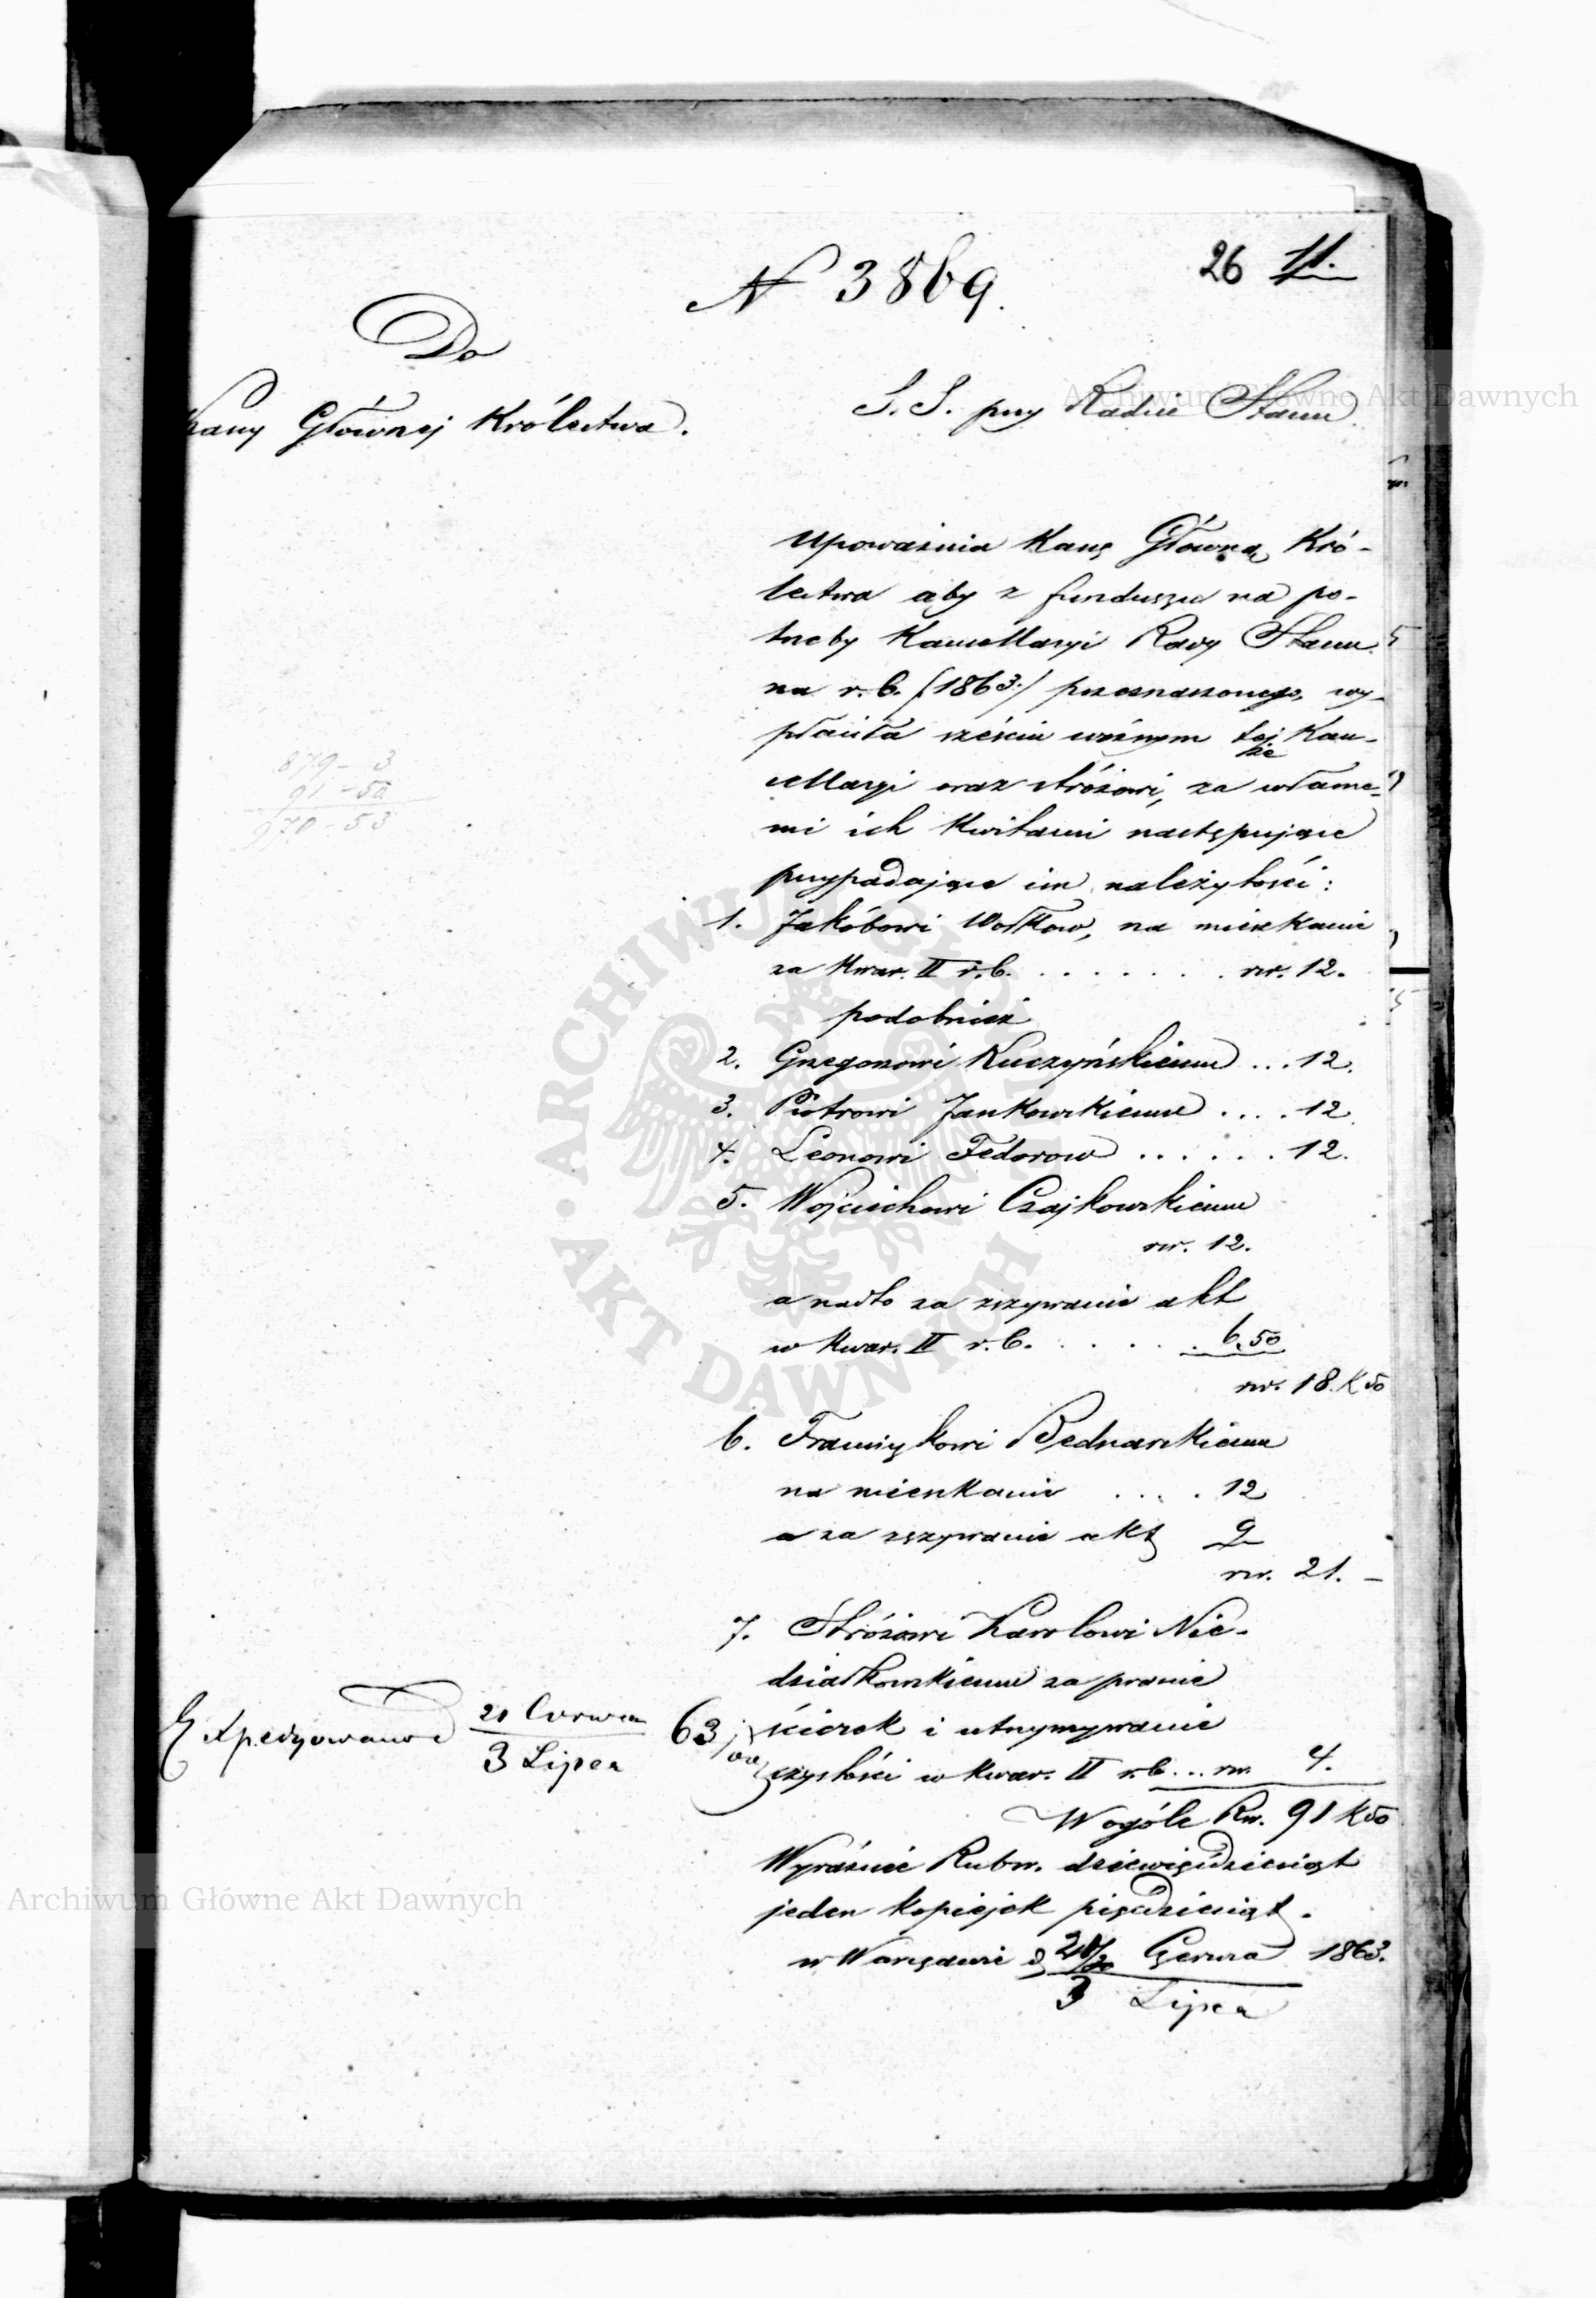 26 11.
N 3869.
Do
Kassy Głównej Królestwa.
S. S. przy Radzie Stanu.
Upoważnia Kassę Główną Kró-
lestwa aby z funduszu na po-
trzeby Kancellaryi Rady Stanu
na r. b. /1863/ przeznaczonego, wy-
płaciła sześciu woźnym tej
że
Kan-
cellaryi oraz stróżowi, za własne-
mi ich kwitami następujące
przypadające im należytości:
879 - 3
91 - 50
970 - 53
1. Jakóbowi Wołkow, na mieszkanie
za kwar. II r. b. . . . . . . . rsr. 12.
podobnież
2. Grzegorzowi Kuczyńskiemu ... 12.
3. Piotrowi Jankowskiemu .... 12.
4. Leonowi Fedorow ...... 12.
5. Wojciechowi Czajkowskiemu
rsr. 12.
a nadto za zszywanie akt
w kwar. II r. b. . . . . . 6.50
rsr. 18. K 50
6. Franciszkowi Bednarskiemu
na mieszkanie . . . . 12
a za zszywanie akt 9
rsr. 21. -
7. Stróżowi Karolowi Nie-
działkowskiemu za pranie
ścierek i utrzymywanie
czystości w kwar. II r. b ... rsr. 4.
Expedyowano 21 Czerwca 63
3 Lipca
W ogóle Rsr. 91 K 50
Wyraźnie Rubsr. dziewięćdziesiąt
jeden kopiejek pięćdziesiąt.
w Warszawie d. Czerwca 1863.
3 Lipca
Archiwum Główne Akt Dawnych
ARCHIWUM GŁÓWNE
AKT DAWNYCH
Archiwum Główne Akt Dawnych